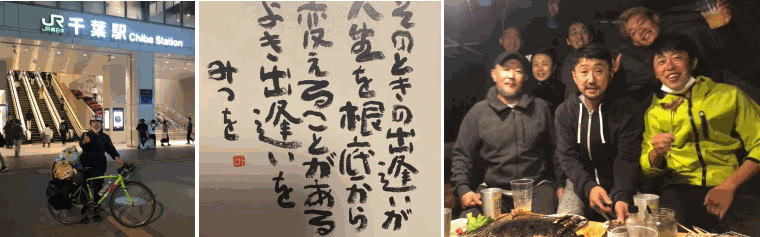 JR 千葉駅 Chiba Station
JR東日本
そのときの出逢いが
人生を根底から
変えることがある
よき出逢いを
みつを